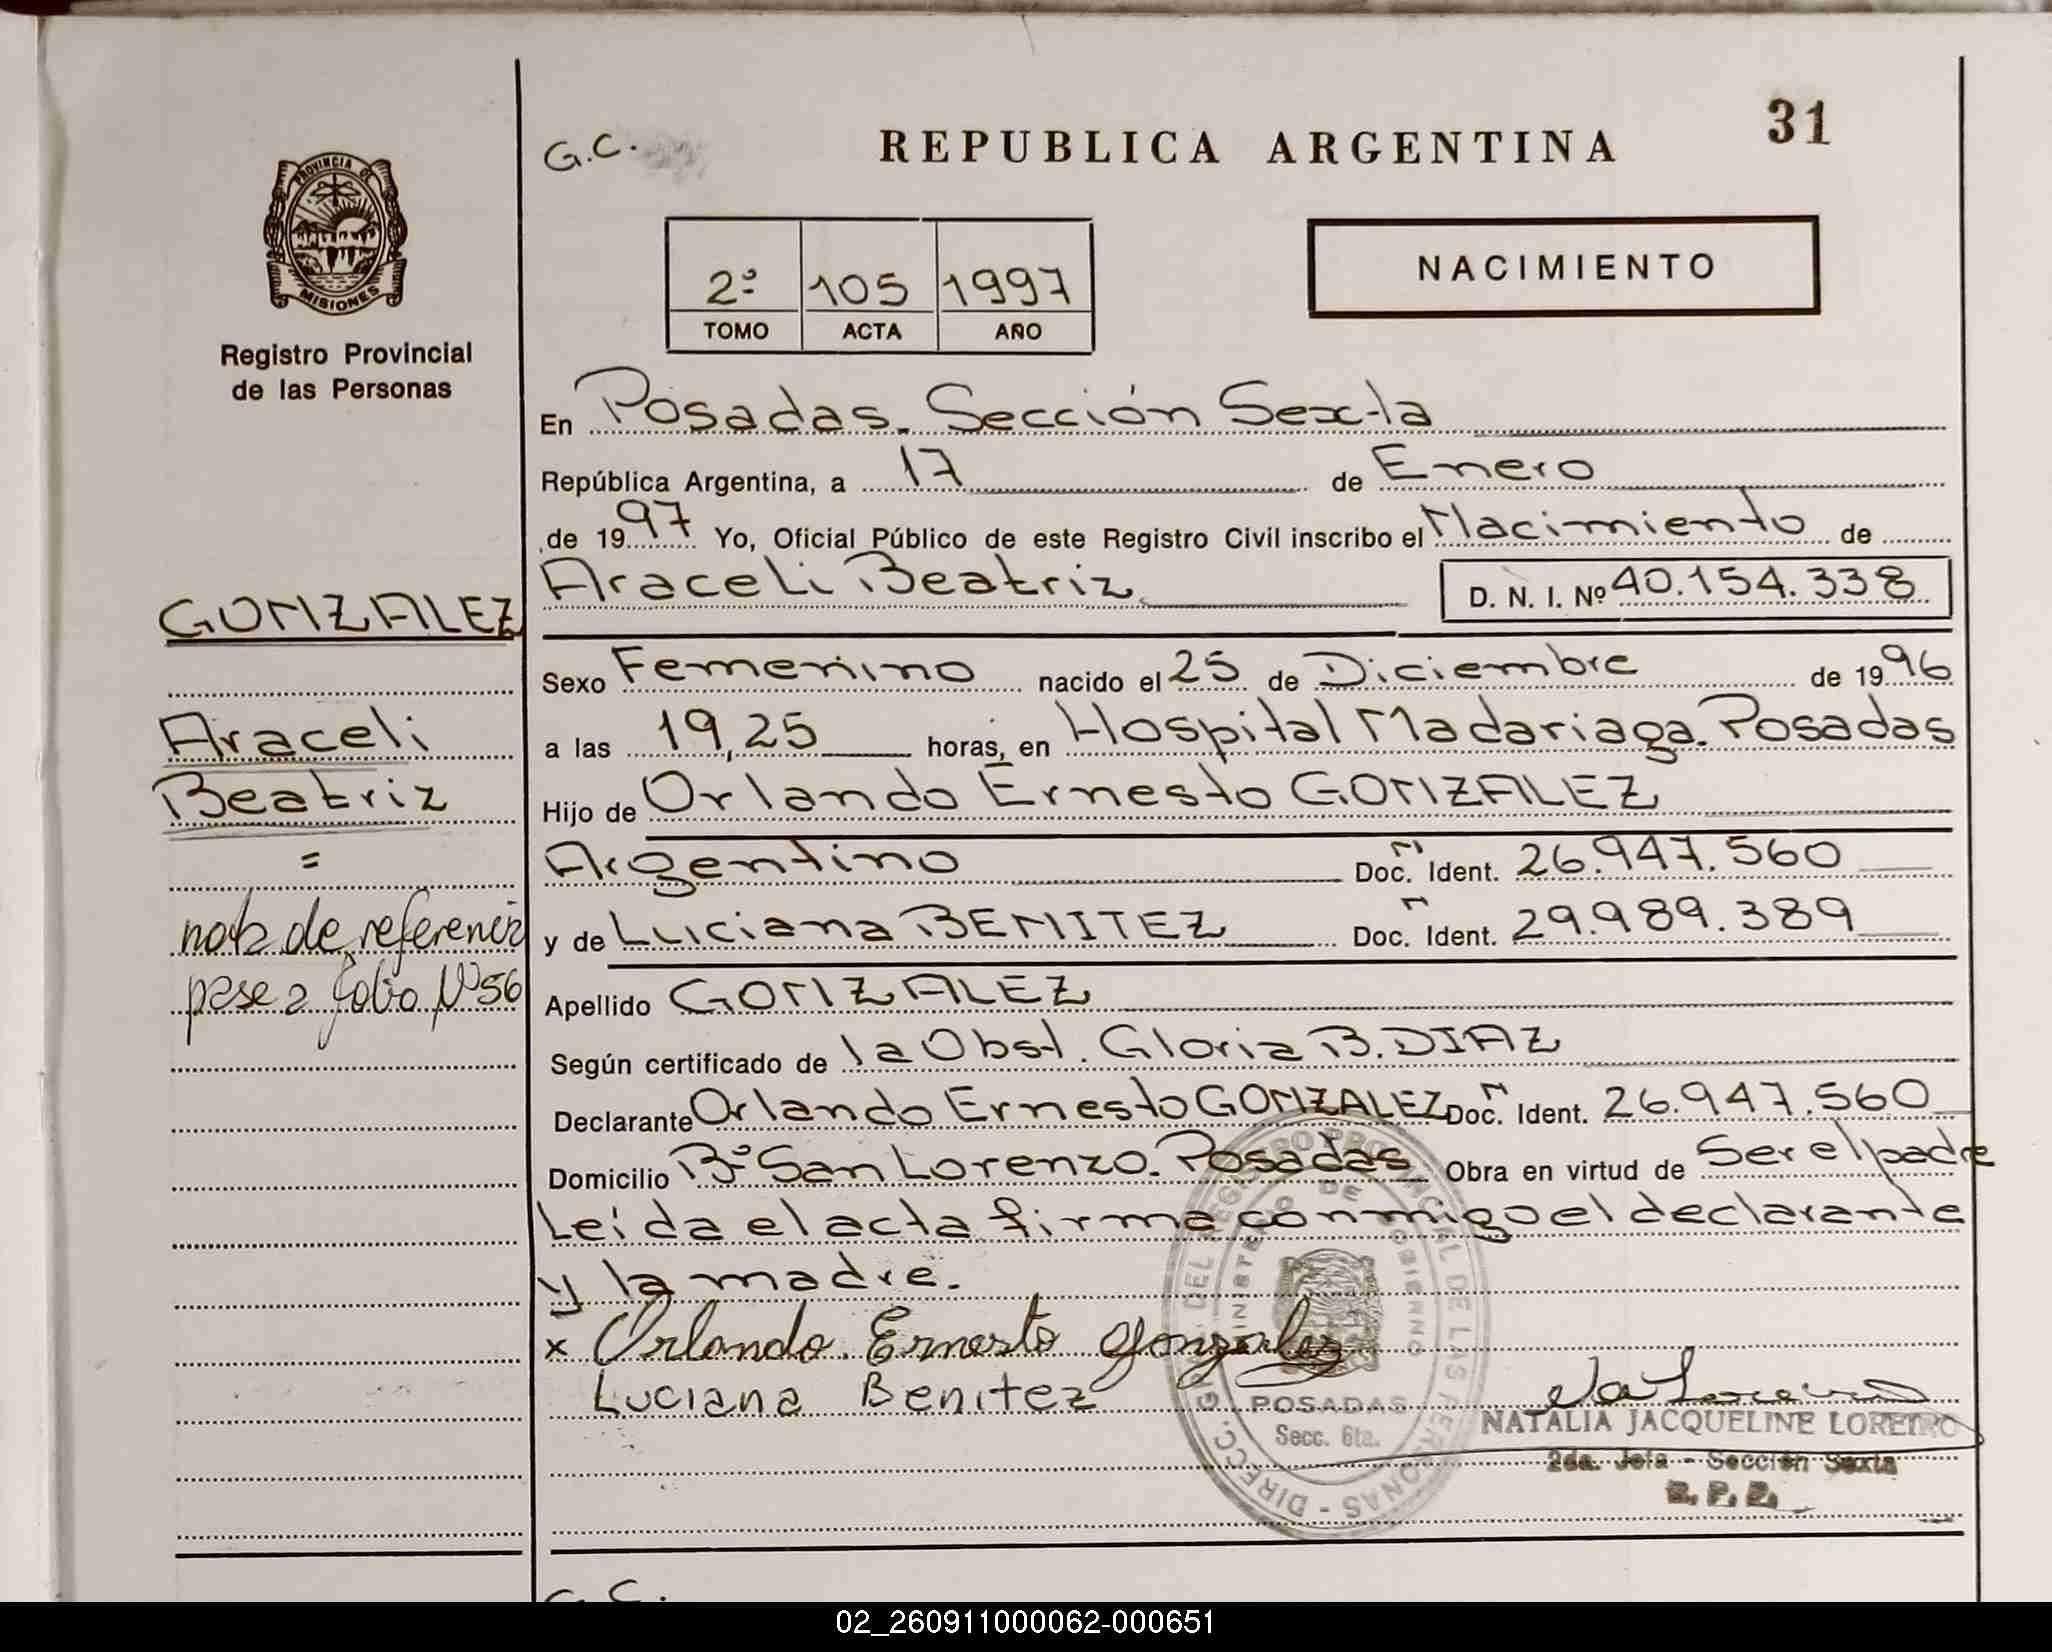 31
G.C.
REPUBLICA ARGENTINA
PROVINCIA DE
MISIONES
Registro Provincial
de las Personas
2º 105 1997
TOMO ACTA AÑO
NACIMIENTO
En Posadas. Sección Sexta
República Argentina, a 17 de Enero
de 1997 Yo, Oficial Público de este Registro Civil inscribo el Nacimiento de
Araceli Beatriz D. N. I. Nº 40.154.338
GONZALEZ
Araceli
Beatriz
=
nota de referencia
pase a folio Nº 56
Sexo Femenino nacido el 25 de Diciembre de 1996
a las 19,25 horas, en Hospital Madariaga. Posadas
Hijo de Orlando Ernesto GONZALEZ
Argentino Doc. Ident. 26.947.560
y de Luciana BENITEZ Doc. Ident. 29.989.389
Apellido GONZALEZ
Según certificado de la Obst. Gloria B. DIAZ
Declarante Orlando Ernesto GONZALEZ Doc. Ident. 26.947.560
Domicilio Bº San Lorenzo. Posadas Obra en virtud de Ser el padre
Leída el acta firma conmigo el declarante
y la madre.
x Orlando Ernesto Gonzalez
Luciana Benitez
DIRECC. GRAL. DEL REGISTRO PROVINCIAL DE LAS PERSONAS -
MINISTERIO DE GOBIERNO
POSADAS
Secc. 6ta.
NATALIA JACQUELINE LOREIRO
2da. Jefa - Sección Sexta
R. P. P.
G.C.
02_260911000062-000651